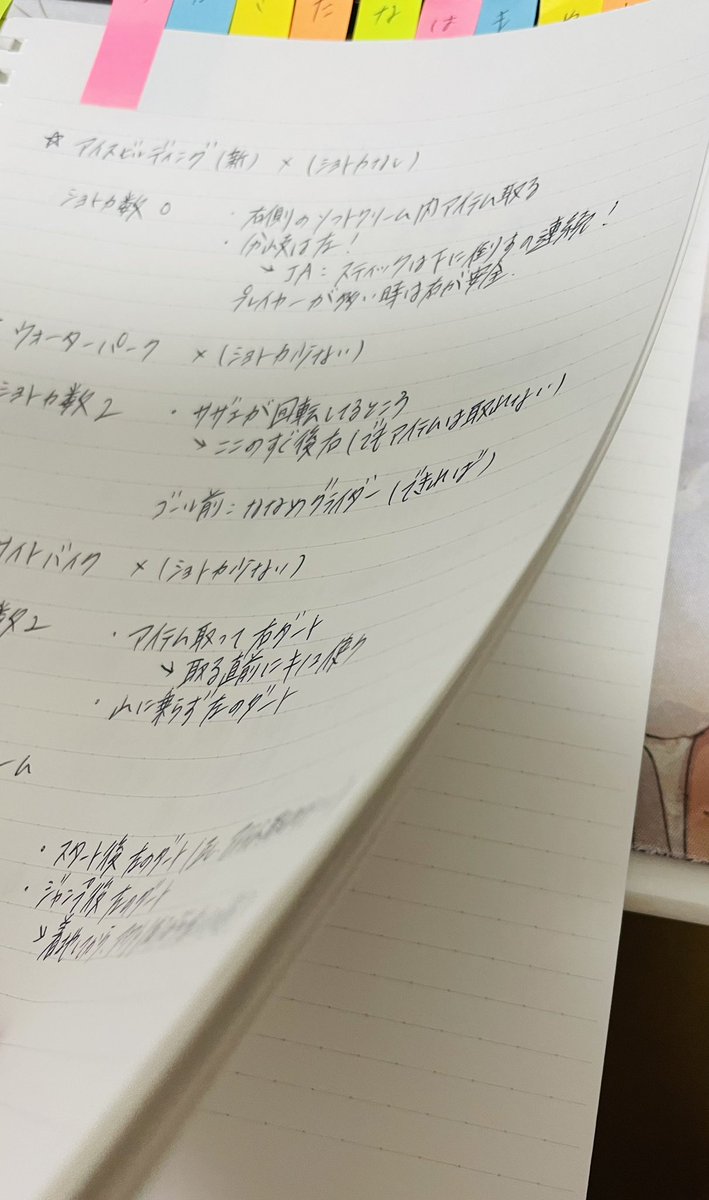 か さ た な は ま や
☆ アイスビルディング(新) × (ショトカなし)
ショトカ数 0 ・右側のソフトクリーム内アイテム取る
・分岐は左!
→ JA:スティックは下に倒すの連続!
プレイヤーが多い時は右が安全.
ウォーターパーク × (ショトカ少ない)
ショトカ数 2 ・サザエが回転してるところ
→ ここのすぐ後右(でもアイテムは取れない)
ゴール前:ななめグライダー(できれば)
サイトバイク × (ショトカ少ない)
数2 ・アイテム取って右ダート
→ 取る直前にキノコ使う
・山に乗らず左のダート
ーム
・スタート後左のダート
・ジャンプ後左のダート
→着地